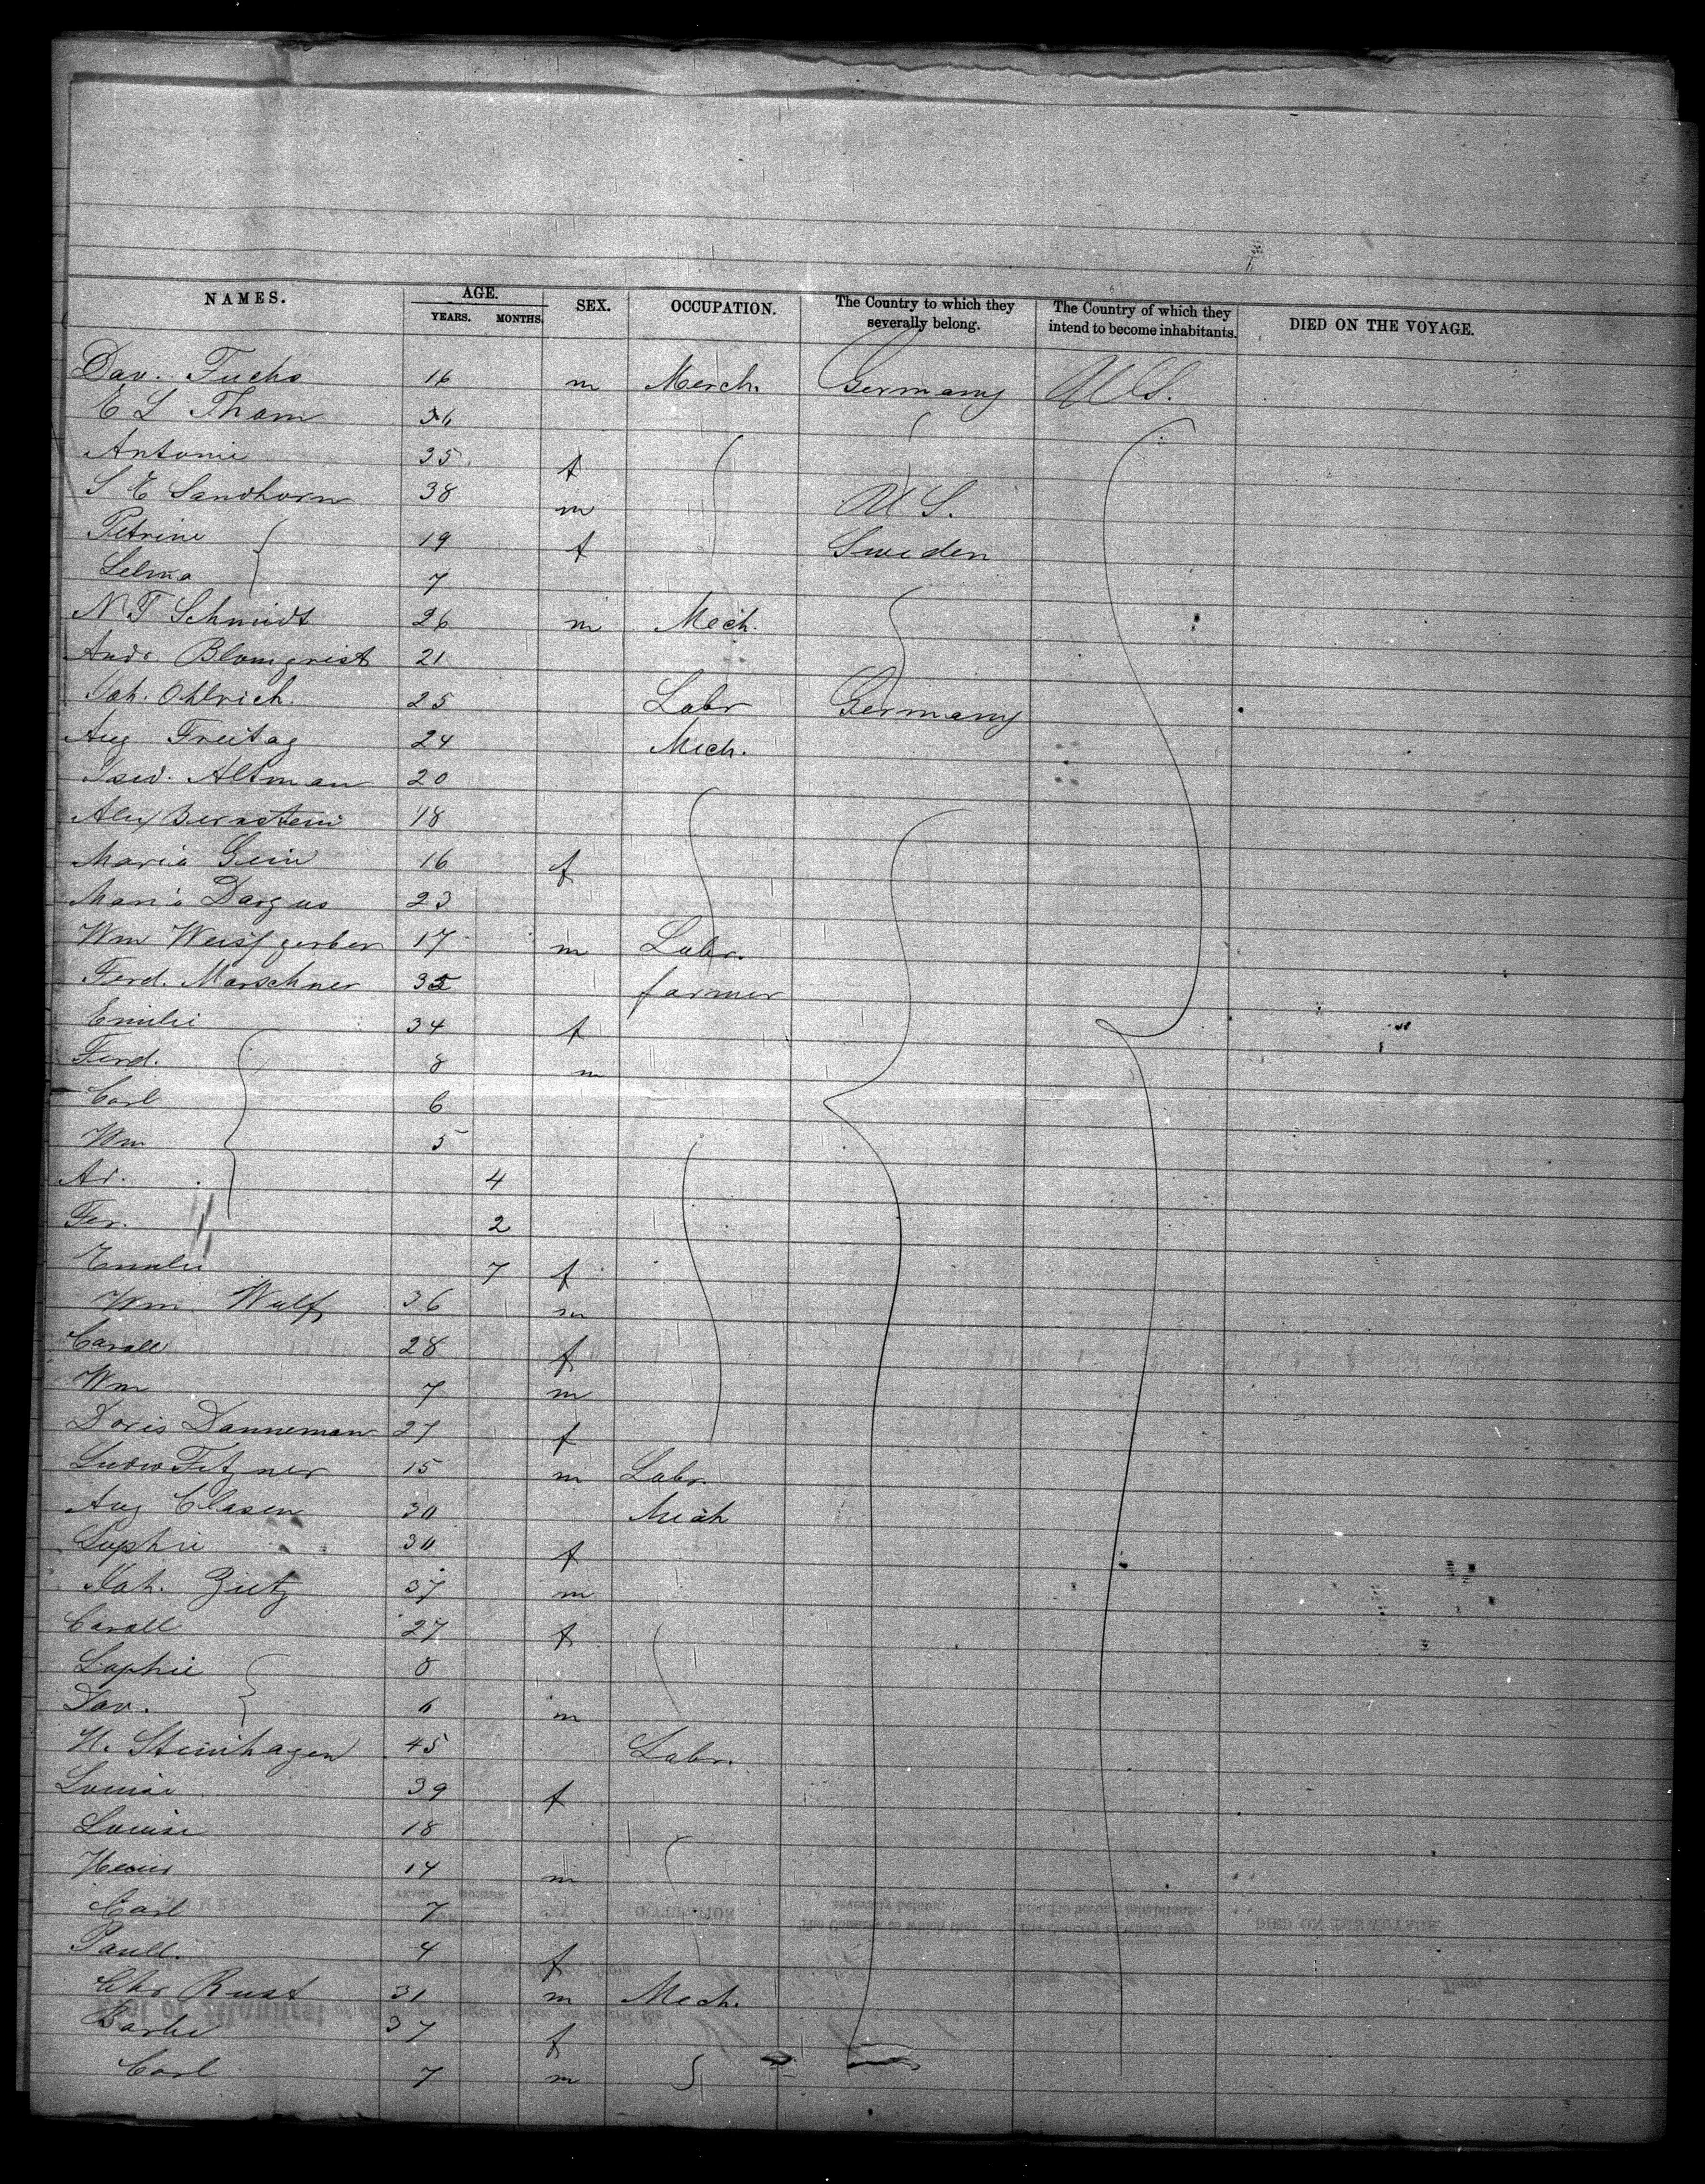 NAMES. AGE. YEARS. MONTHS. SEX. OCCUPATION. The Country to which they severally belong. The Country of which they intend to become inhabitants. DIED ON THE VOYAGE.
Dav. Fuchs 16 m Merch. Germany U.S.
E L Tham 36
Antonie 35 f
S E Sandhorn 38 m U S.
Petrine 19 f Sweden
Selma 7
N T Schmidt 26 m Mech.
Andr. Blomqvist 21
Joh. Ohlrich 25 Labr Germany
Aug Freitag 24 Mech.
Altman 20
Alex Bernstein 18
Maria Gein 16 f
Maria Dargus 23
Wm Weisfgerber 17 m Labr.
Ferd. Marschner 35 farmer
Emilie 34 f
Ferd. 8 m
Carl 6
Wm 5
Ad. 4
Fer. 2
Emilie 7 f
Wm. Wulf 36 m
Caroll 28 f
Wm 7 m
Doris Danneman 27 f
Ludw Fitzner 15 m Labr.
Aug Clasen 30 Mech
Sophie 30 f
Joh. Zietz 37 m
Caroll 27 f
Sophie 8
Dav. 6 m
H. Steinhagen 45 Labr.
Louise 39 f
Louise 18
14 m
Carl 7
Paull. 4 f
Chr Rust 31 m Mech.
37 f
Carl 7 m